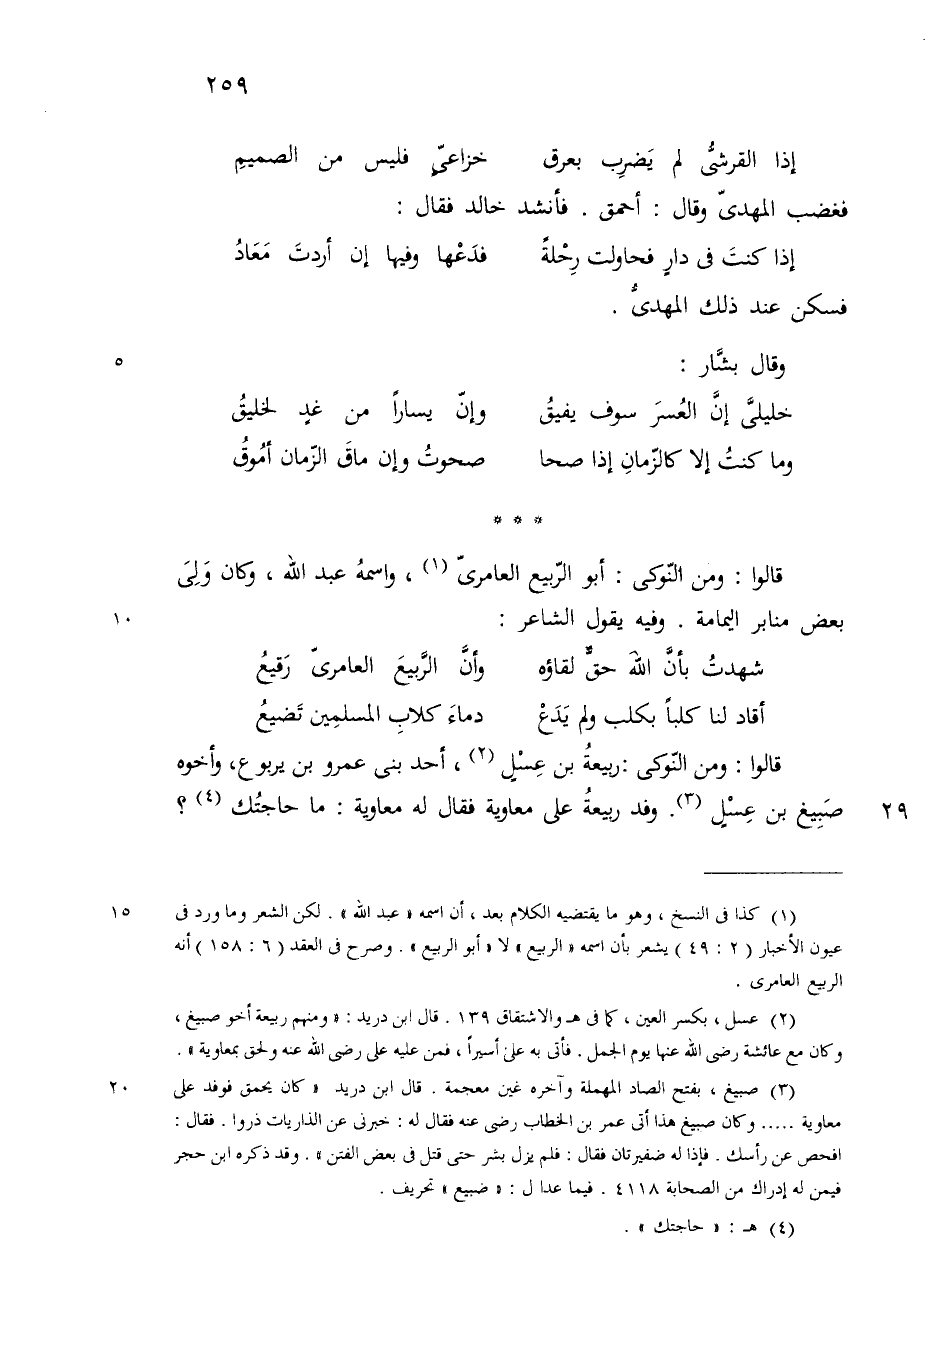 ٢٥٩
إذا القرشىُّ لم يَضرِب بعرق خزاعىّ فليس من الصميمِ
فغضب المهدىّ وقال : أحمق . فأنشد خالد فقال :
إذا كنتَ فى دارٍ فحاولت رِحْلةً فدَعْها وفيها إن أردتَ مَعَادُ
فسكن عند ذلك المهدىُّ .
وقال بشَّار : ٥
خليلىَّ إنَّ العُسرَ سوف يفيقُ وإنّ يساراً من غدٍ لخليقُ
وما كنتُ إلا كالزّمانِ إذا صحا صحوتُ وإن ماقَ الزّمان أمُوقُ
* * *
قالوا : ومن النَّوكى : أبو الرّبيع العامرىّ (١) ، واسمهُ عبد الله ، وكان وَلِىَ
بعض منابر اليمامة . وفيه يقول الشاعر : ١٠
شهدتُ بأنَّ اللهَ حقٌّ لقاؤه وأنَّ الرَّبيعَ العامرىّ رَقيعُ
أقاد لنا كلباً بكلب ولم يَدَعْ دماءَ كلابِ المسلمِين تَضيعُ
قالوا : ومن النَّوكى :ربيعةُ بن عِسْلٍ (٢) ، أحد بنى عمرو بن يربوع، وأخوه
صَبِيغ بن عِسْلٍ (٣). وفد ربيعةُ على معاوية فقال له معاوية : ما حاجتُك (٤) ؟ ٢٩
(١) كذا فى النسخ ، وهو ما يقتضيه الكلام بعد ، أن اسمه « عبد الله » . لكن الشعر وما ورد فى ١٥
عيون الأخبار ( ٢ : ٤٩ ) يشعر بأن اسمه « الربيع » لا « أبو الربيع » . وصرح فى العقد ( ٦ : ١٥٨ ) أنه
الربيع العامرى .
(٢) عسل ، بكسر العين ، كما فى هـ والاشتقاق ١٣٩ . قال ابن دريد : « ومنهم ربيعة أخو صبيغ ،
وكان مع عائشة رضى الله عنها يوم الجمل . فأتى به علىّ أسيراً ، فمن عليه على رضى الله عنه ولحق بمعاوية » .
(٣) صبيغ ، بفتح الصاد المهملة وآخره غين معجمة . قال ابن دريد « كان يحمق فوفد على ٢٠
معاوية ..... وكان صبيغ هذا أتى عمر بن الخطاب رضى عنه فقال له : خبرنى عن الذاريات ذروا . فقال :
افحص عن رأسك . فإذا له ضفيرتان فقال : فلم يزل بشر حتى قتل فى بعض الفتن » . وقد ذكره ابن حجر
فيمن له إدراك من الصحابة ٤١١٨ . فيما عدا ل : « ضبيع » تحريف .
(٤) هـ : « حاجتك » .